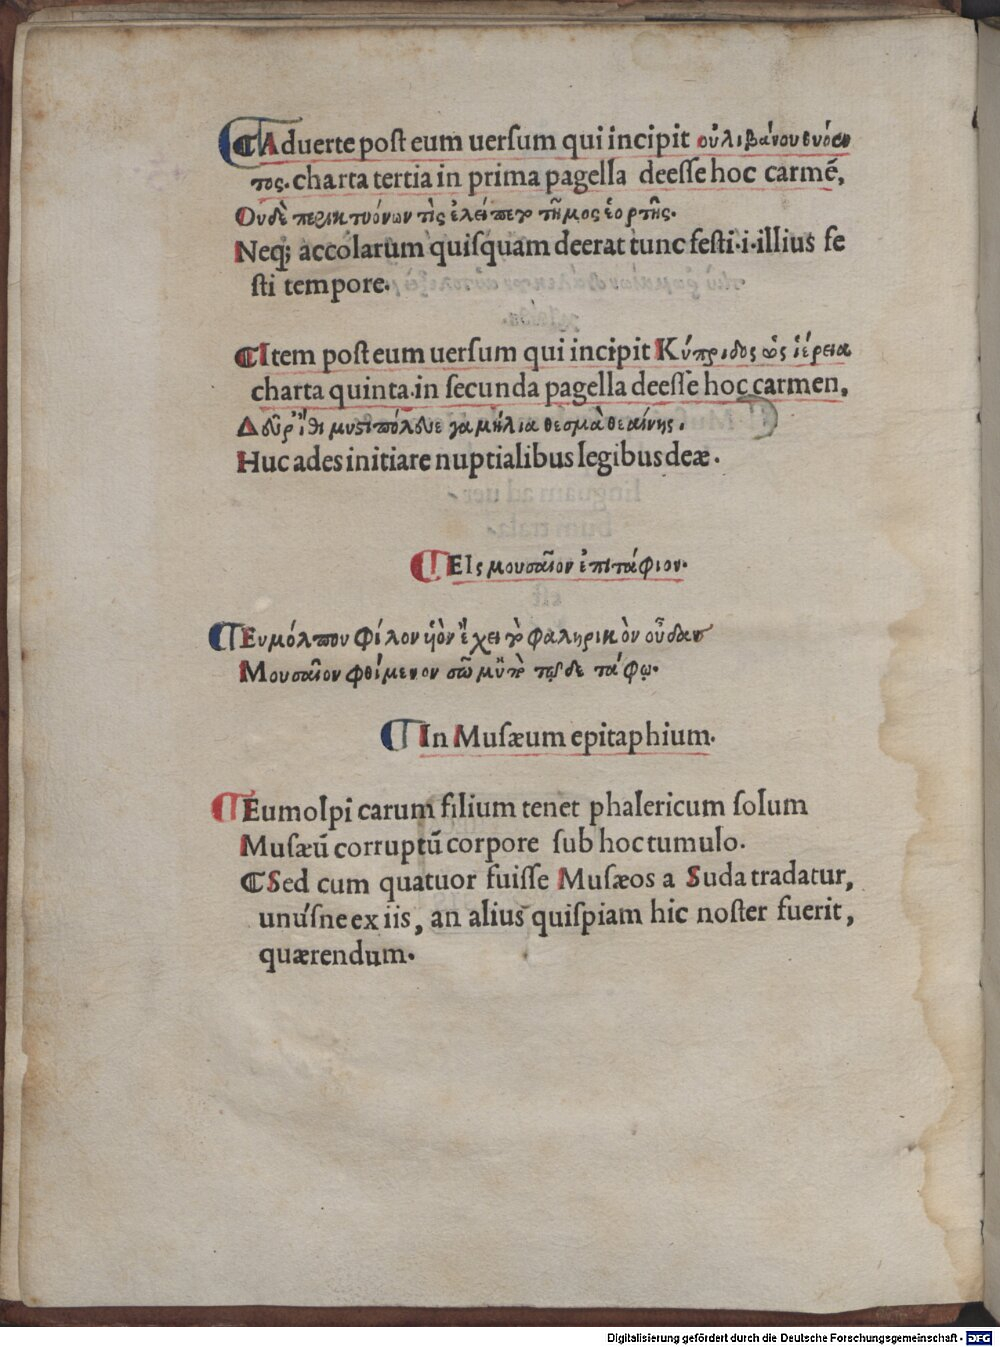 ¶Aduerte post eum uersum qui incipit οὐ λιβάνου θυόεν
τος. charta tertia in prima pagella deesse hoc carmē,
Ουδὲ περικτυόνων τὶς ἐλείπετο τῆμος ἑορτῆς.
Neq; accolarum quisquam deerat tunc festi·i·illius fe
sti tempore.
¶Item post eum uersum qui incipit Κύπριδος ὡς ἱέρεια
charta quinta.in secunda pagella deesse hoc carmen,
Δεῦρ' ἴθι μυστιπόλευε γαμήλια θεσμὰ θεαίνης.
Huc ades initiare nuptialibus legibus deæ.
¶ΕΙς μουσαῖον ἐπιτάφιον.
¶Ευμόλπου φίλον ὑὸν ἔχει τὸ φαληρικὸν οὖδας
Μουσαῖον φθίμενον σῶμ' ὑπὸ τῷδε τάφῳ.
¶In Musæum epitaphium.
¶Eumolpi carum filium tenet phalericum solum
Musæū corruptū corpore sub hoc tumulo.
¶Sed cum quatuor fuisse Musæos a Suda tradatur,
unúsne ex iis, an alius quispiam hic noster fuerit,
quærendum.
Digitalisierung gefördert durch die Deutsche Forschungsgemeinschaft - DFG